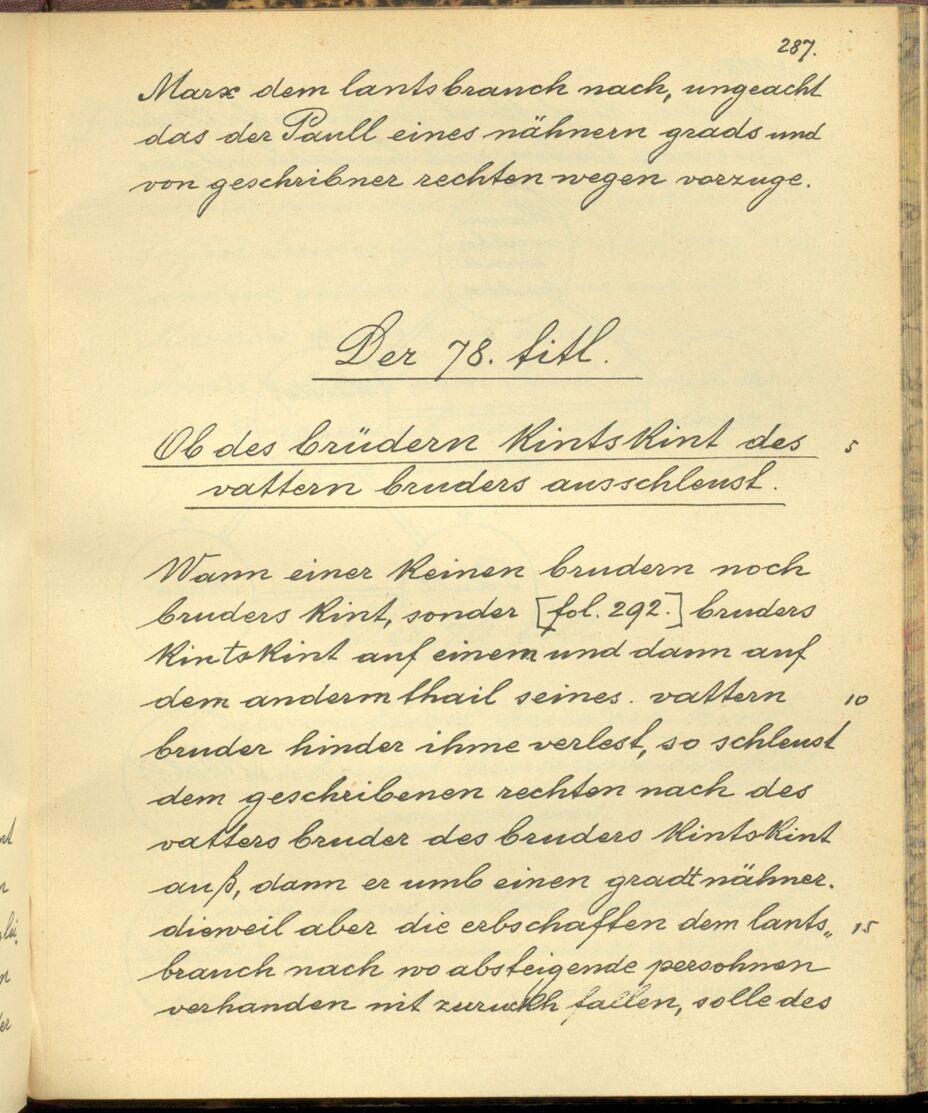 287.
Marx dem lantsbrauch nach, ungeacht
das der Paull eines nähnern grads und
von geschribner rechten wegen vorzuge.
Der 78. titl.
Ob des brüdern kintskint des 5
vattern bruders ausschleust.
Wann einer keinen brudern noch
bruders kint, sonder [fol. 292.] bruders
kintskint auf einem und dann auf
dem anderm thail seines. vattern 10
bruder hinder ihme verlest, so schleust
dem geschribenen rechten nach des
vatters bruder des bruders kintskint
auß, dann er umb einen gradt nähner.
dieweil aber die erbschaften dem lants„ 15
brauch nach wo absteigende persohnen
verhanden nit zuruckh fallen, solle des